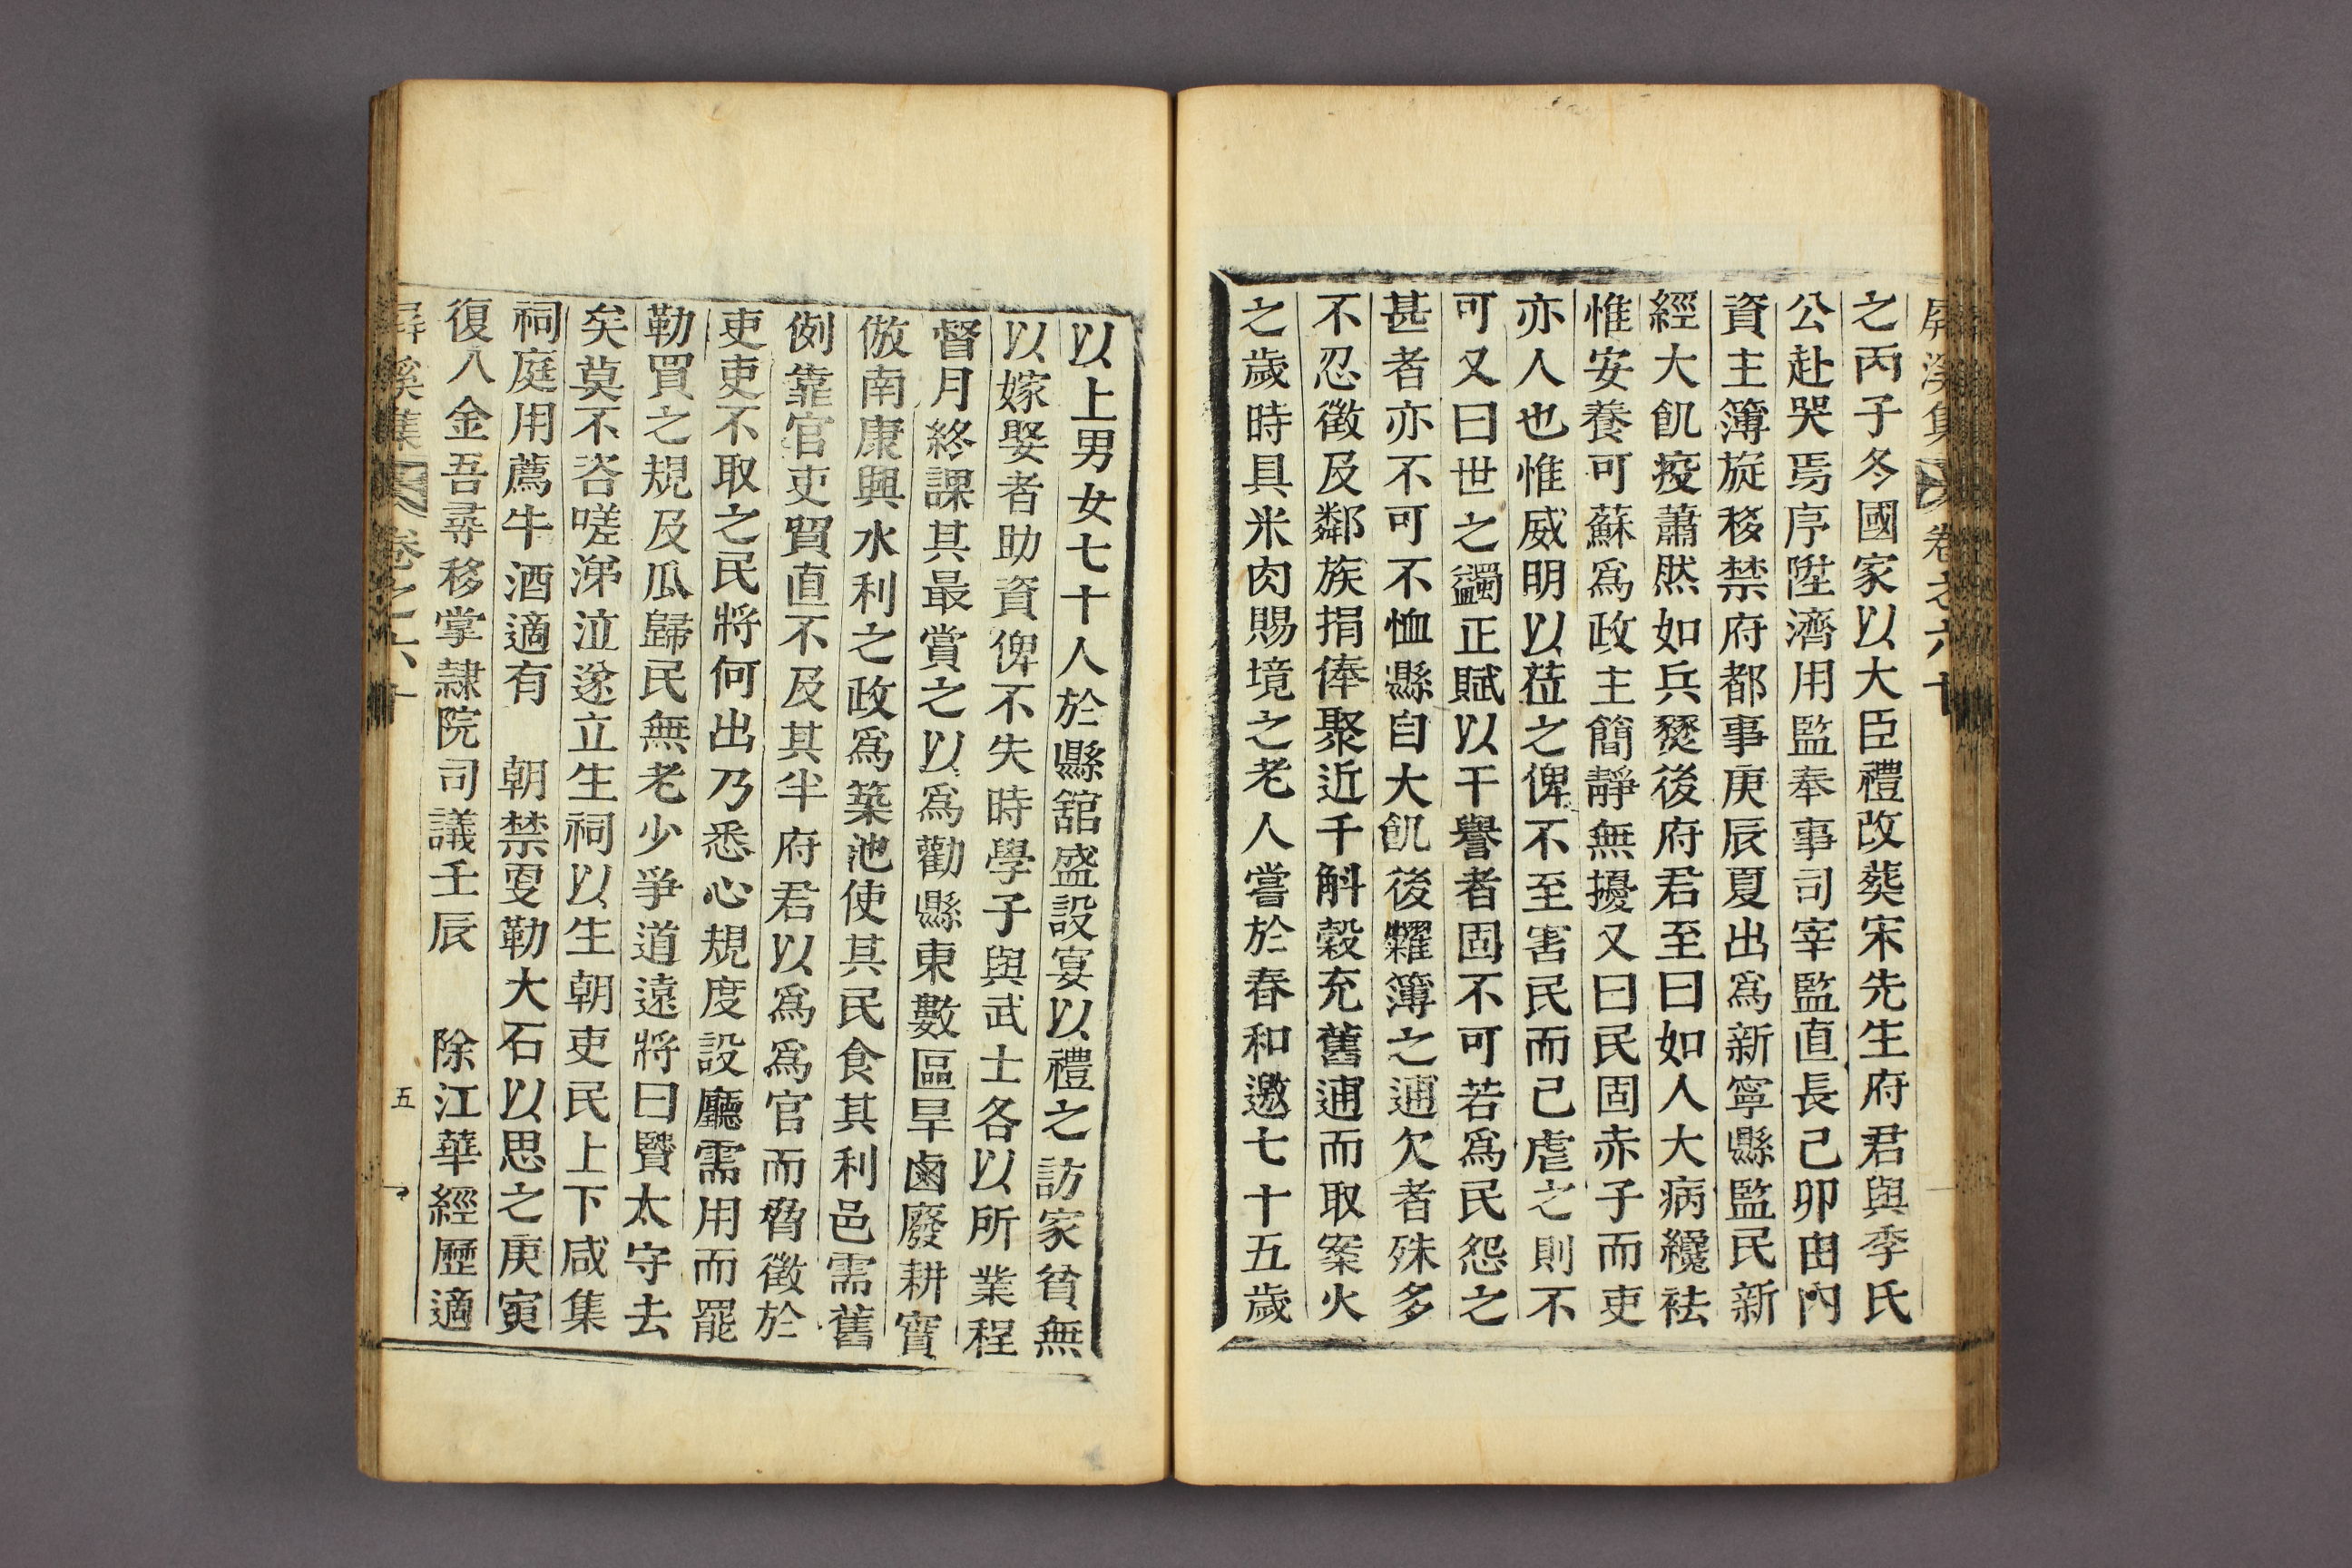 屛溪集 卷之六十
之丙子冬國家以大臣禮改葬宋先生府君與李氏
公赴哭焉序陞濟用監奉事司宰監直長己卯由內
資主簿旋移禁府都事庚辰夏出爲新寧縣監民新
經大飢疫蕭然如兵燹後府君至曰如人大病纔祛
惟安養可蘇爲政主簡靜無擾又曰民固赤子而吏
亦人也惟威明以莅之俾不至害民而已虐之則不
可又曰世之蠲正賦以干譽者固不可若爲民怨之
甚者亦不可不恤縣自大飢後糶簿之逋欠者殊多
不忍徵及鄰族捐俸聚近千斛穀充舊逋而取案火
之歲時具米肉賜境之老人嘗於春和邀七十五歲
以上男女七十人於縣舘盛設宴以禮之訪家貧無
以嫁娶者助資俾不失時學子與武士各以所業程
督月終課其最賞之以爲勸縣東數區旱鹵廢耕實
倣南康興水利之政爲築池使其民食其利邑需舊
例靠官吏貿直不及其半府君以爲爲官而脅徵於
吏吏不取之民將何出乃悉心規度設廳需用而罷
勒買之規及瓜歸民無老少爭道遠將曰賢太守去
矣莫不咨嗟涕泣遂立生祠以生朝吏民上下咸集
祠庭用薦牛酒適有 朝禁更勒大石以思之庚寅
復入金吾尋移掌隷院司議壬辰 除江華經歷適
屛溪集 卷之六十 五